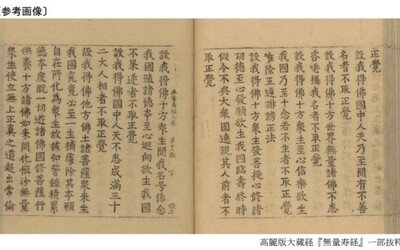 [参考画像]
正覺
設我得佛國中人天乃至聞有不善
名者不取正覺
設我得佛十方世界無量諸佛不悉
咨嗟稱我名者不取正覺
設我得佛十方衆生至心信樂欲生
我國乃至十念若不生者不取正覺
唯除五逆誹謗正法
設我得佛十方衆生發菩提心修諸
功德至心發願欲生我國臨壽終時
假令不與大衆圍遶現其人前者不
取正覺
設我得佛十方衆生聞我名号係念
我國殖諸德本至心迴向欲生我國
不果遂者不取正覺
設我得佛國中人天不悉成滿三十
二大人相者不取正覺
設我得佛他方佛土諸菩薩衆來生
我國究竟必至一生補處除其本願
自在所化爲衆生故被弘誓鎧積累
德本度脫一切遊諸佛國修菩薩行
供養十方諸佛如來開化恒沙無量
衆生使立無上正真之道超出常倫
高麗版大藏経『無量寿経』一部抜粋